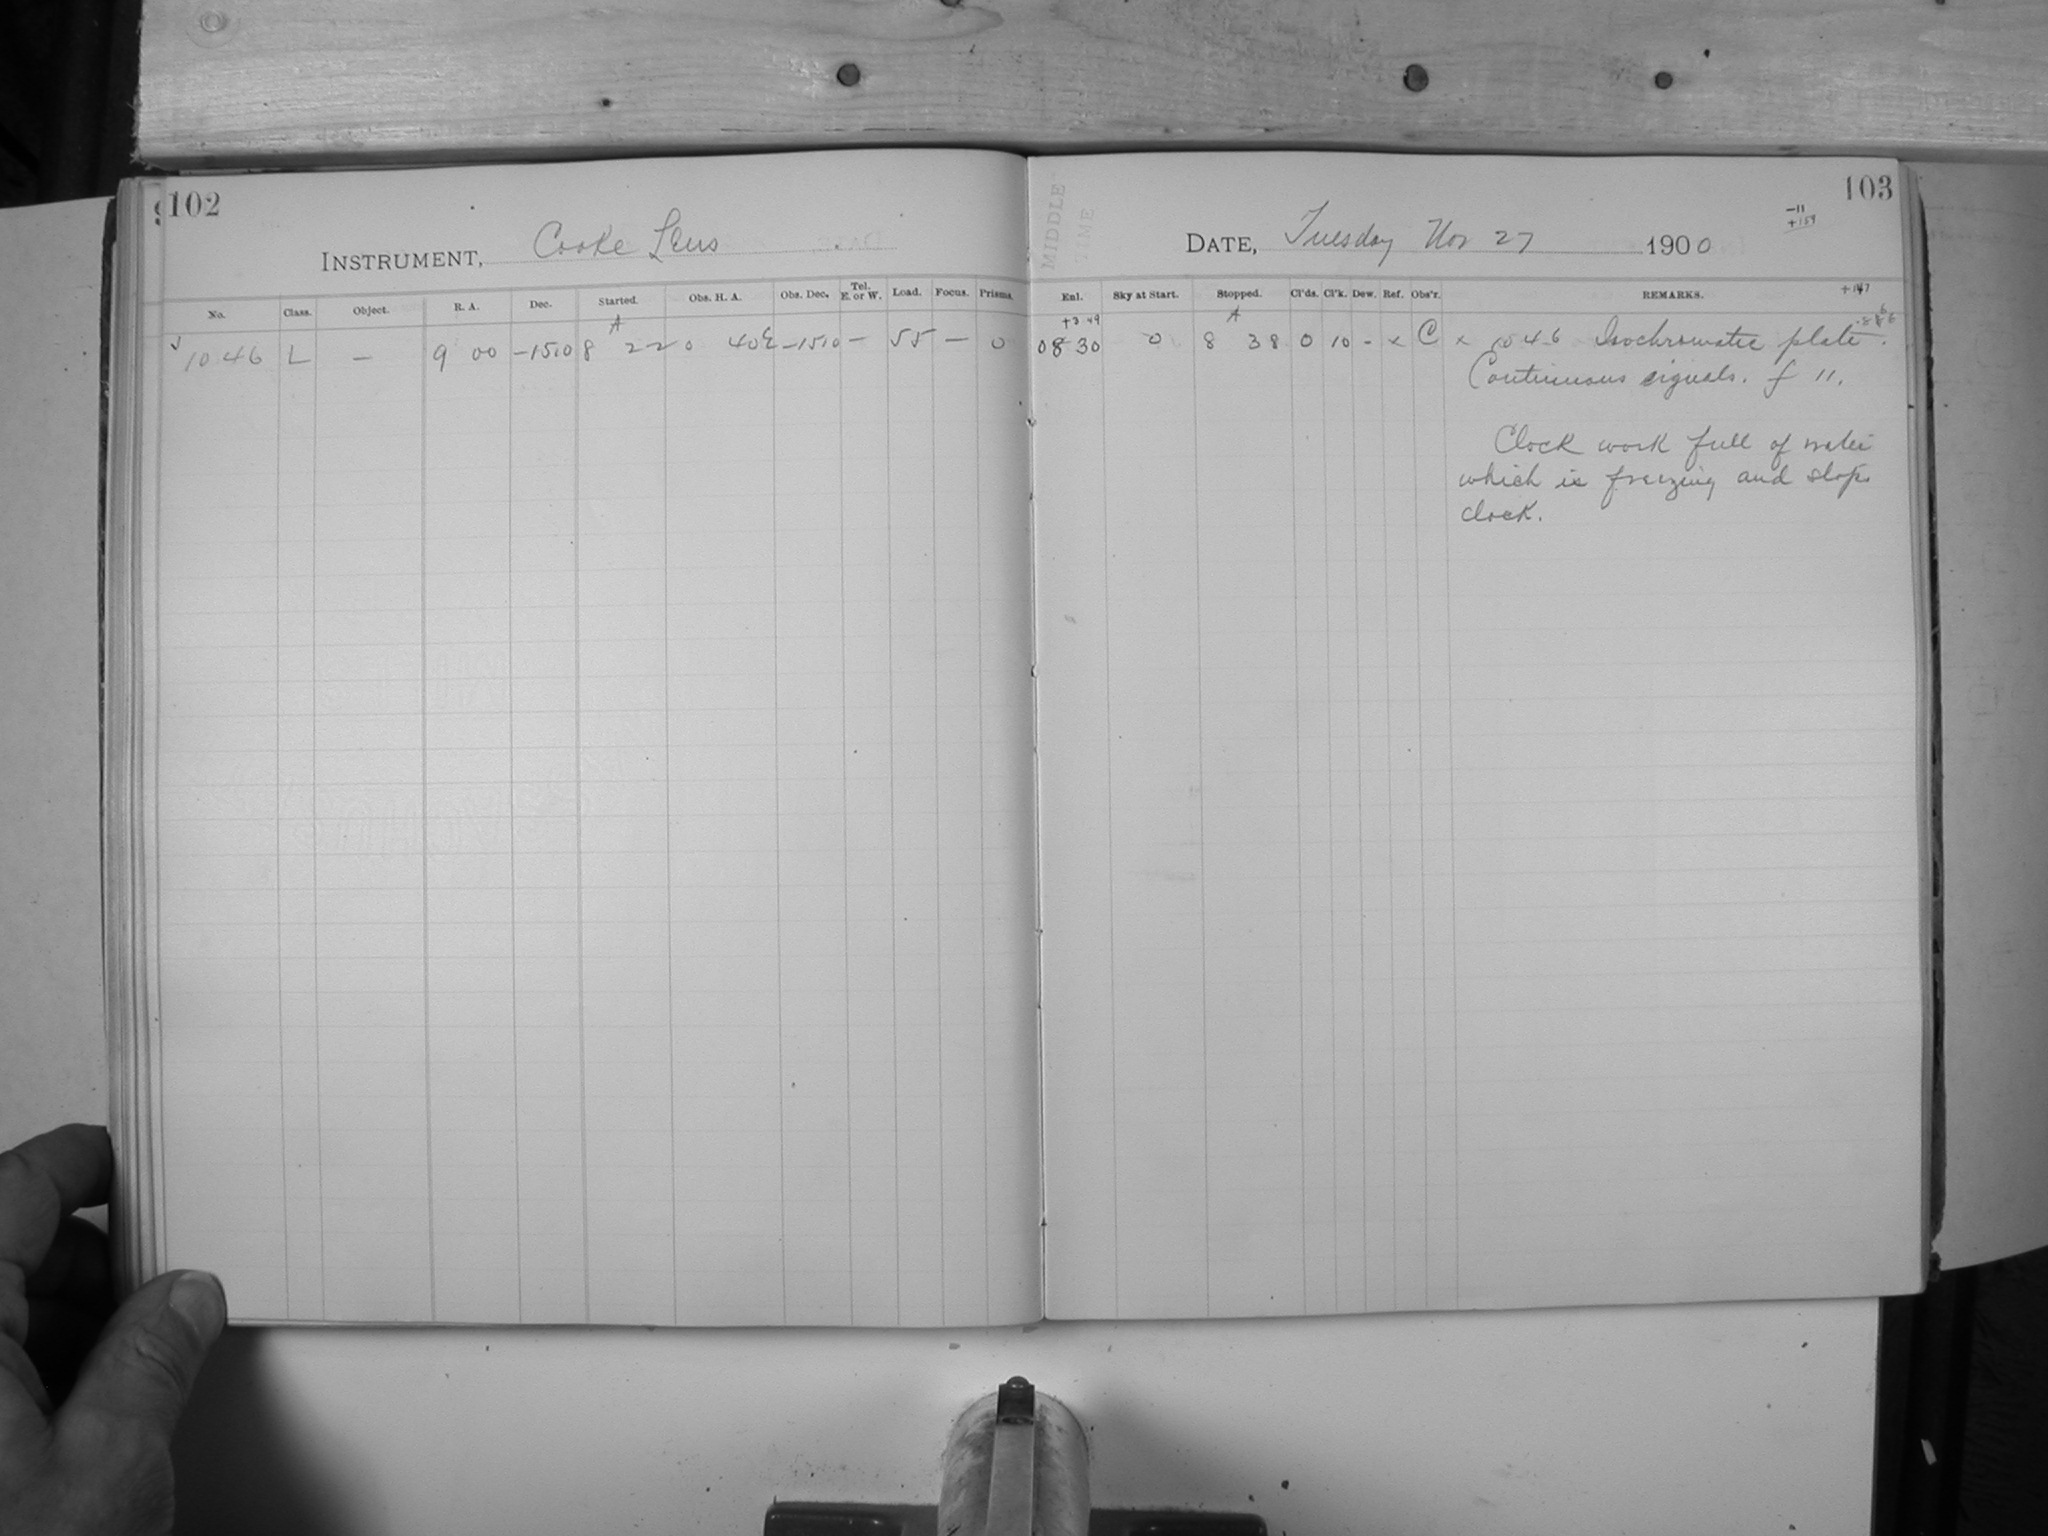 102
INSTRUMENT, Cooke Lens
No. Class. Object. R. A. Dec. Started. Obs. H. A. Obs. Dec. Tel. E. or W. Load. Focus. Prisms.
A
1046 L — 9 00 -1510 8 22 0 40E -1510 — 55 — 0
103
-11
+159
MIDDLE
TIME
DATE, Tuesday Nov 27 1900
Enl. Sky at Start. Stopped. Cl'ds. Cl'k. Dew. Ref. Obs'r. REMARKS.
+3 49 A
08 30 0 8 38 0 10 - x C x 1046 Isochromatic plate.
Continuous signals. f 11.
Clock work full of water
which is freezing and stops
clock.